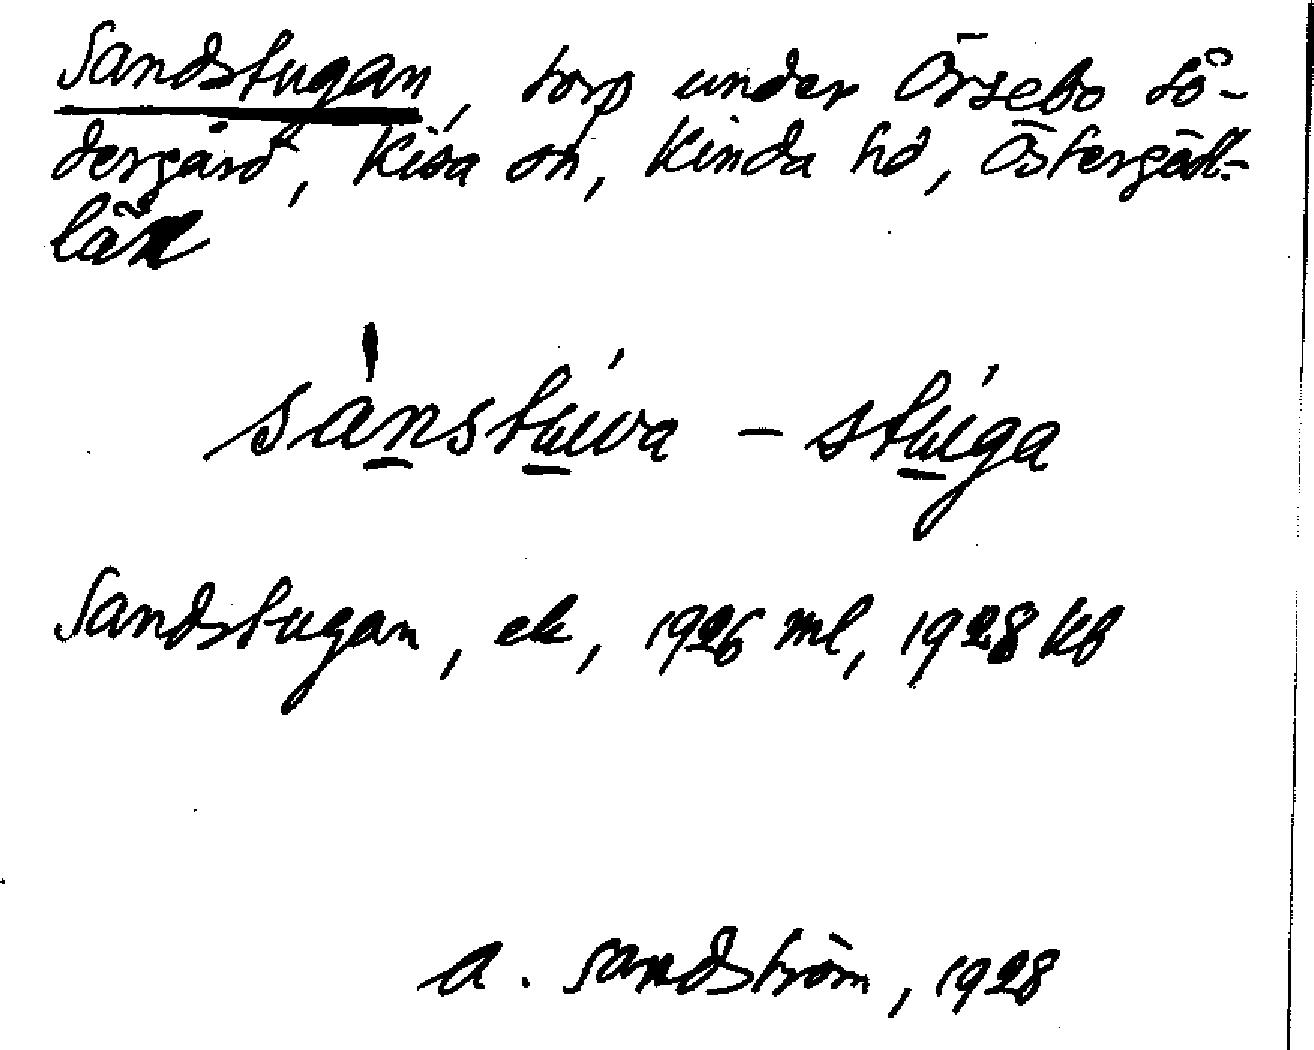 Sandstugan, torp under Örsebo Sö-
dergård, Kisa sn, Kinda hd, Östergötl:
län
sànstuva - stuga
Sandstugan, ek, 1926 ml, 1928 kb
A. Sandström, 1928